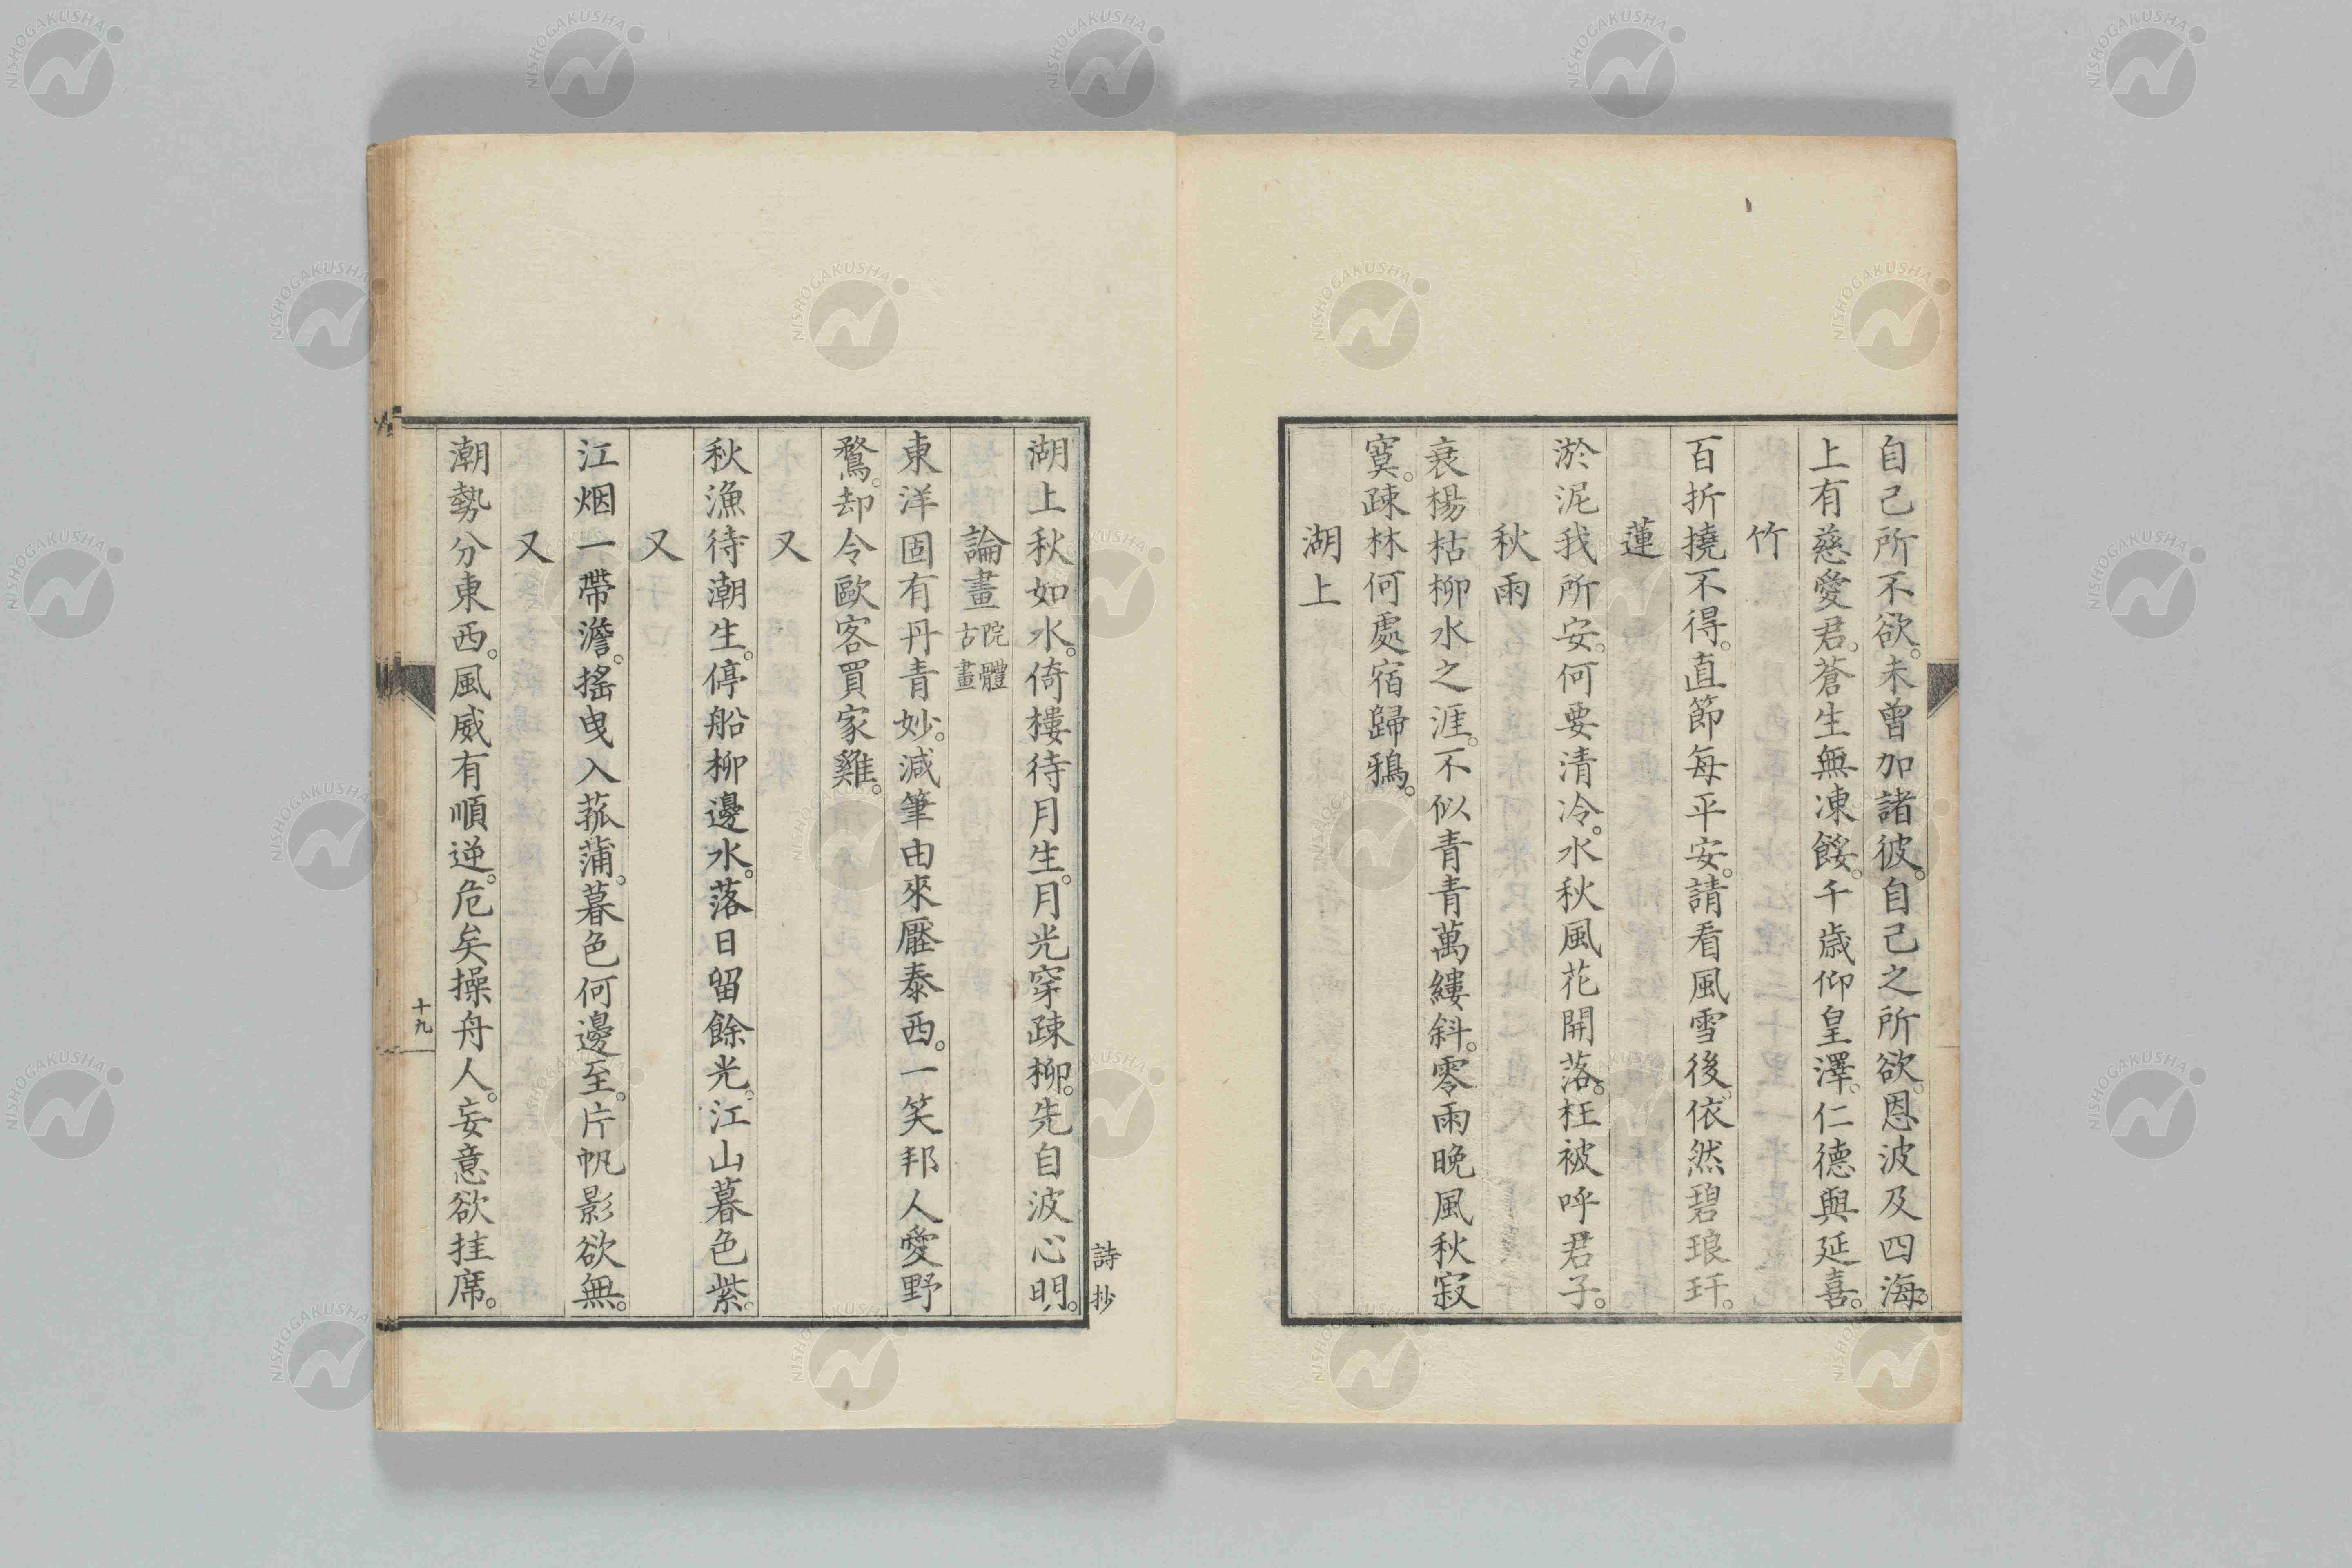 自己所不欲。未曾加諸彼。自己之所欲。恩波及四海。
上有慈愛君。蒼生無凍餒。千歳仰皇澤。仁德與延喜。
竹
百折撓不得。直節每平安。請看風雪後。依然碧琅玕。
蓮
淤泥我所安。何要清冷。水秋風花開落。枉被呼君子。
秋雨
衰楊枯柳水之涯。不似青青萬縷斜。零雨晚風秋寂
寞。疎林何處宿歸鴉。
湖上
湖上秋如水。倚樓待月生。月光穿疎柳。先自波心明。
論畫 院體古畫
東洋固有丹青妙。減筆由來壓泰西。一笑邦人愛野
鶩。却令歐客買家雞。
又
秋漁待潮生。停船柳邊水。落日留餘光。江山暮色紫。
又
江烟一帶澹。搖曳入菰蒲。暮色何邊至。片帆影欲無。
又
潮勢分東西。風威有順逆。危矣操舟人。妄意欲挂席。
詩抄
十九
NISHOGAKUSHA